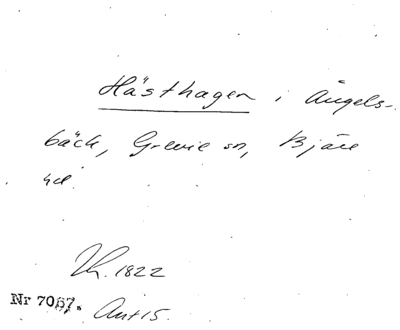 Hästhagen i Ängels-
bäck, Grevie sn, Bjäre
hd.
1822
Nr 7067.